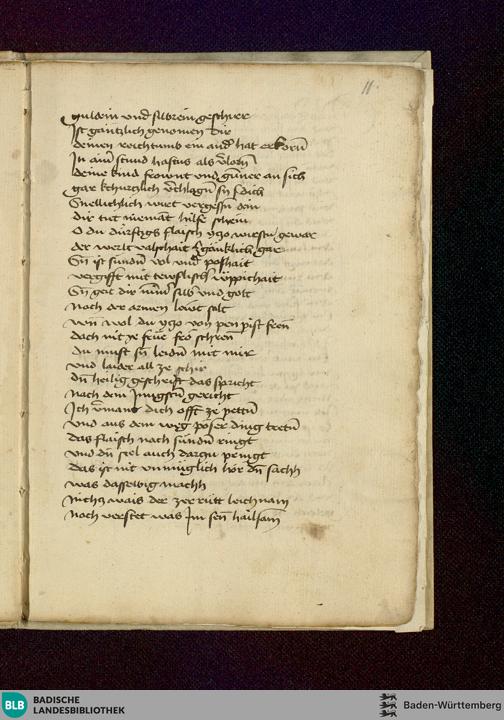 11.
guldein und silbrein geschirr
Ist gantzlich genomen dir
deinen reichtumb ein ander hat erkorn
In ainer stund hastus als verlorn
deine kind freünt und günner an sich
gar schnellich dich
Snellichlich wirt vergessen dein
dir tuet niemant hilfe schein
O du dürftigs flaisch yczo wirstu gewar
der werlt valschait gar
Sy ist sünden vol und poshait
vergifft mit teuflischer üppichait
Sy geit dir nimer silber und golt
Noch der armen lewt solt
wann wol du yczo von pen pist
doch nit ye
du must leiden mit mir
und laider all ze schir
die heilig geschrift das spricht
Nach dem Jungsten gericht
Ich vermant dich offt ze petten
und aus dem weg pöser ding treten
das flaisch nach sünden ringt
und die sel auch darzu penigt
das ist nit unmüglich hör die sach
was dasselbig mach
Nichcz wais der zerrütt leichnam
Noch verstet was Im sey hailsam
BLB
BADISCHE
LANDESBIBLIOTHEK
Baden-Württemberg